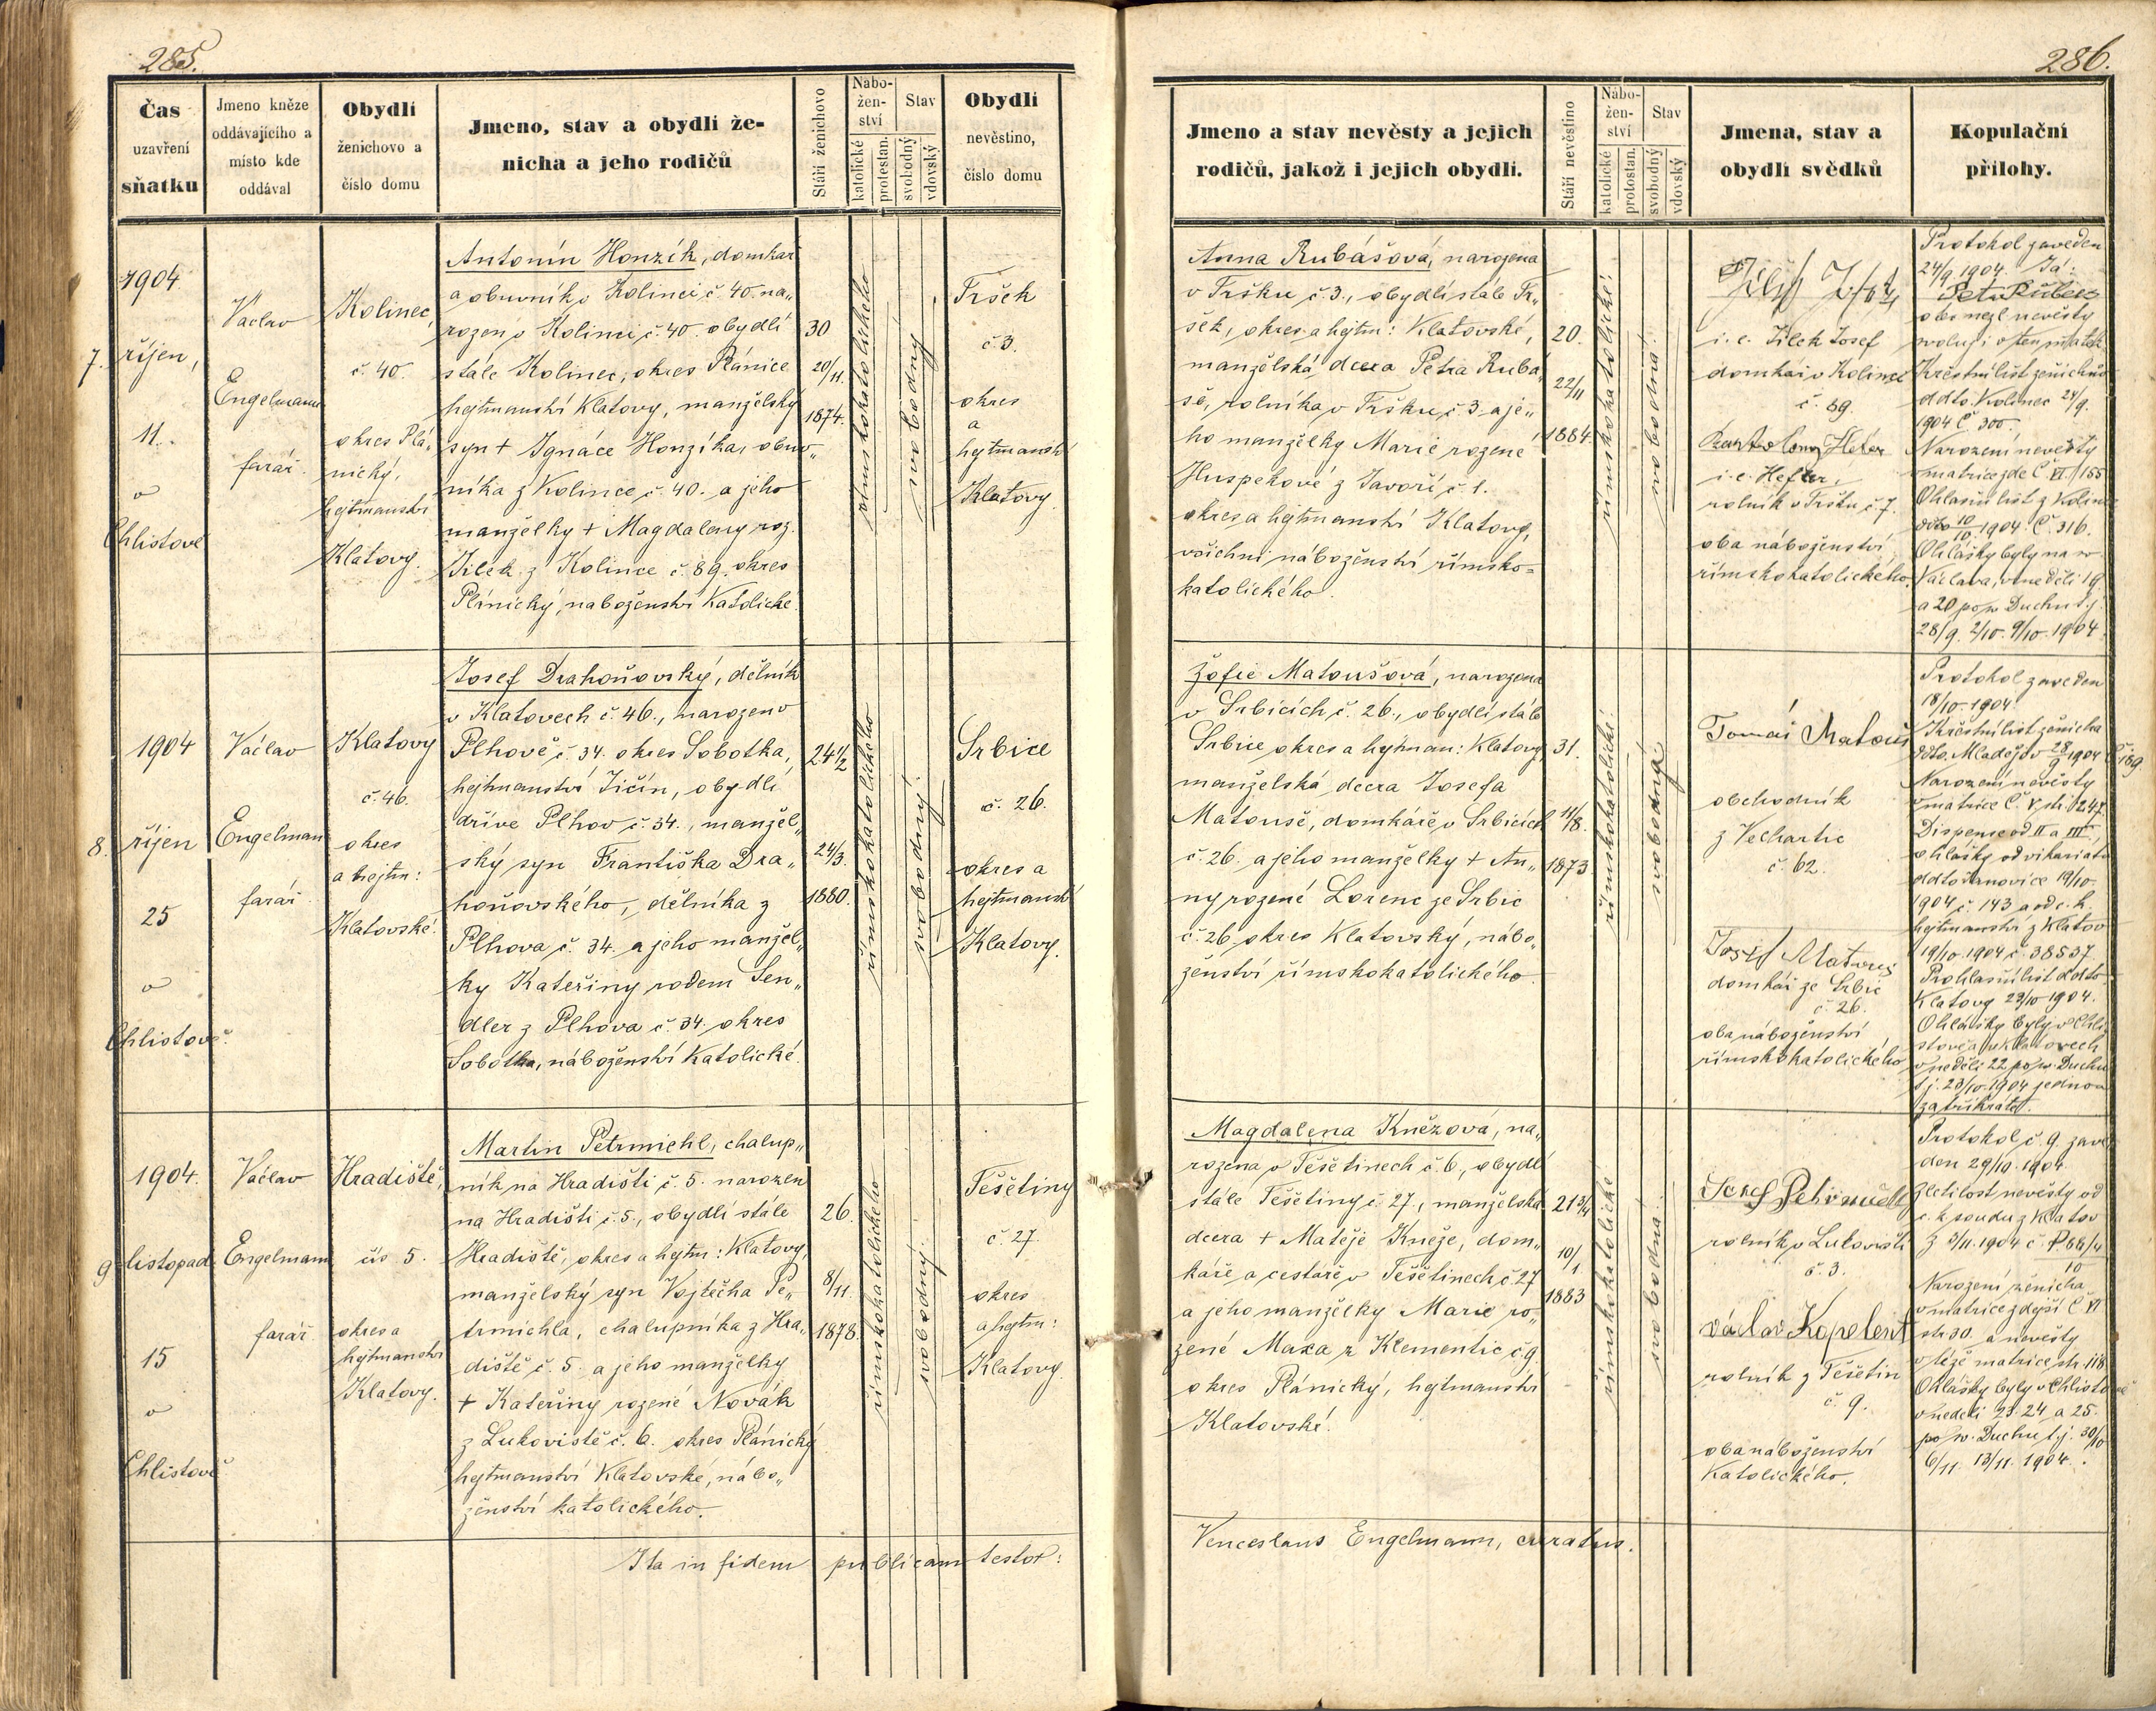 285.
Čas
uzavření
sňatku
Jmeno kněze
oddávajícího a
místo kde
oddával
Obydlí
ženichovo a
číslo domu
Jmeno, stav a obydlí že-
nicha a jeho rodičů
Stáří ženichovo
Nábo-
žen-
ství
katolické
protestan.
Stav
svobodný
vdovský
Obydlí
nevěstino,
číslo domu
7.
1904
říjen,
11.
v
Chlistově
Václav
Engelmann
farář.
Kolinec,
č. 40.
okres Plá-
nický,
hejtmanství
Klatovy.
Antonín Honzík, domkař
a obuvník v Kolinci č. 40. na„
rozen v Kolinci č. 40. obydlí
stále Kolinec, okres Plánice
hejtmanství Klatovy, manželský
syn + Ignáce Honzíka, obuv„
níka z Kolince č. 40. a jeho
manželky + Magdaleny roz.
Jílek z Kolince č. 89. okres
Plánický, náboženství Katolické.
30
20/11.
1874.
římskokatolického
svobodný
Tršek
č. 3.
okres
a
hejtmanství
Klatovy.
8.
1904
říjen
25
v
Chlistově.
Václav
Engelman
farář.
Klatovy
č. 46.
okres
a hejtm:
Klatovské.
Josef Drahoňovský, dělník
v Klatovech č. 46., narozen v
Plhově č. 34. okres Sobotka,
hejtmanství Jičín, obydlí
dříve Plhov č. 34., manžel„
ský syn Františka Dra„
hoňovského, dělníka z
Plhova č. 34. a jeho manžel„
ky Kateřiny rodem Šen„
dler z Plhova č. 34. okres
Sobotka, náboženství Katolické.
24 1/2
24/3.
1880.
římskokatolického
svobodný
Srbice
č. 26.
okres a
hejtmanství
Klatovy.
9
1904.
listopad
15
v
Chlistově
Václav
Engelmann
farář.
Hradiště,
čís 5.
okres a
hejtmanství
Klatovy.
Martin Petrmichl, chalup„
ník na Hradišti č. 5. narozen
na Hradišti č. 5., obydlí stále
Hradiště, okres a hejtm: Klatovy,
manželský syn Vojtěcha Pe„
trmichla, chalupníka z Hra„
diště č. 5. a jeho manželky
+ Kateřiny rozené Novák
z Lukoviště č. 6. okres Plánický
hejtmanství Klatovské, nábo„
ženství katolického.
26.
8/11.
1878.
římskokatolického
svobodný
Těšetiny
č. 27.
okres
a hejtm:
Klatovy.
Ita in fidem publicam testor:
286.
Jmeno a stav nevěsty a jejich
rodičů, jakož i jejich obydlí.
Stáří nevěstino
Nábo-
žen-
ství
katolické
protestan.
Stav
svobodný
vdovský
Jmena, stav a
obydlí svědků
Kopulační
přílohy.
Anna Rubášová, narozena
v Tršku č. 3., obydlí stále Tr„
šek, okres a hejtm: Klatovské,
manželská dcera Petra Rubá„
še, rolníka v Tršku č. 3. a je„
ho manželky Marie rozené
Huspekové z Javoří č. 1.
okres a hejtmanství Klatovy,
všichni náboženství římsko=
katolického.
20.
22/11
1884.
římskokatolické
svobodná
i. e. Jílek Josef
domkář v Kolinci
č. 89.
i. e. Hefler,
rolník v Tršku č. 7.
oba náboženství
římskokatolického.
Protokol zaveden
24/9. 1904. Já:
Petr Rubeš
nevěsty
Křestní list ženichův
ddto. Kolinec 24/9.
1904 č. 300.
Narození nevěsty
v matrice zde Č. VI/155
Ohlašní list z Kolince
ddto 10/10. 1904. č. 316.
Ohlášky byly na sv.
Václava, v neděli 19
a 20 po sv. Duchu t. j.
28/9. 2/10. 9/10. 1904.
Žofie Matoušová, narozena
v Srbicích č. 26., obydlí stále
Srbice okres a hejtman: Klatovy,
manželská dcera Josefa
Matouše, domkáře v Srbicích
č. 26. a jeho manželky + An„
ny rozené Lorenc ze Srbic
č. 26. okres Klatovský, nábo„
ženství římskokatolického.
31.
11/8.
1873
římskokatolické
svobodná
Tomáš Matouš
obchodník
z Vechartic
č. 62.
Josef Matouš
domkář ze Srbic
č. 26.
oba náboženství
římskokatolického
Protokol zaveden
18/10. 1904.
Křestní list ženicha
ddto. Mladějov 28/9 1904 č. 189
Narození nevěsty
v matrice Č. V. str. 247.
Dispense od II a III
ohlášky od vikariátu
ddto Janovice 19/10.
1904 č. 143 a od c. k.
hejtmanství z Klatov
19/10. 1904 č. 38537.
Prohlašní list ddto
Klatovy 23/10 1904.
Ohlášky byly v Chli
stově a v Klatovech
v neděli 22 po sv. Duchu
t. j. 23/10. 1904 jednou
za třikráte.
Magdalena Kněžová, na„
rozena v Těšetinech č. 6., obydlí
stále Těšetiny č. 27., manželská
dcera + Matěje Kněže, dom„
káře a cestáře v Těšetinech č. 27
a jeho manželky Marie ro„
zené Maxa z Klementic č. 9.
okres Plánický, hejtmanství
Klatovské.
21 3/4
10/1.
1883
římskokatolické
svobodná
Josef Petrmichl
rolník v Lukovišti
č. 3.
Václav Kopelent
rolník z Těšetin
č. 9.
oba náboženství
Katolického.
Protokol č. 9. zave
den 29/10. 1904.
Zletilost nevěsty od
c. k. soudu z Klatov
Narození ženicha
v matrice zdejší Č. VI
str. 30. a nevěsty
v téže matrice str. 118
Ohlášky byly v Chlistově
v neděli 23. 24. a 25.
po sv. Duchu t. j. 30/10
6/11. 13/11. 1904.
Venceslaus Engelmann, curatus.